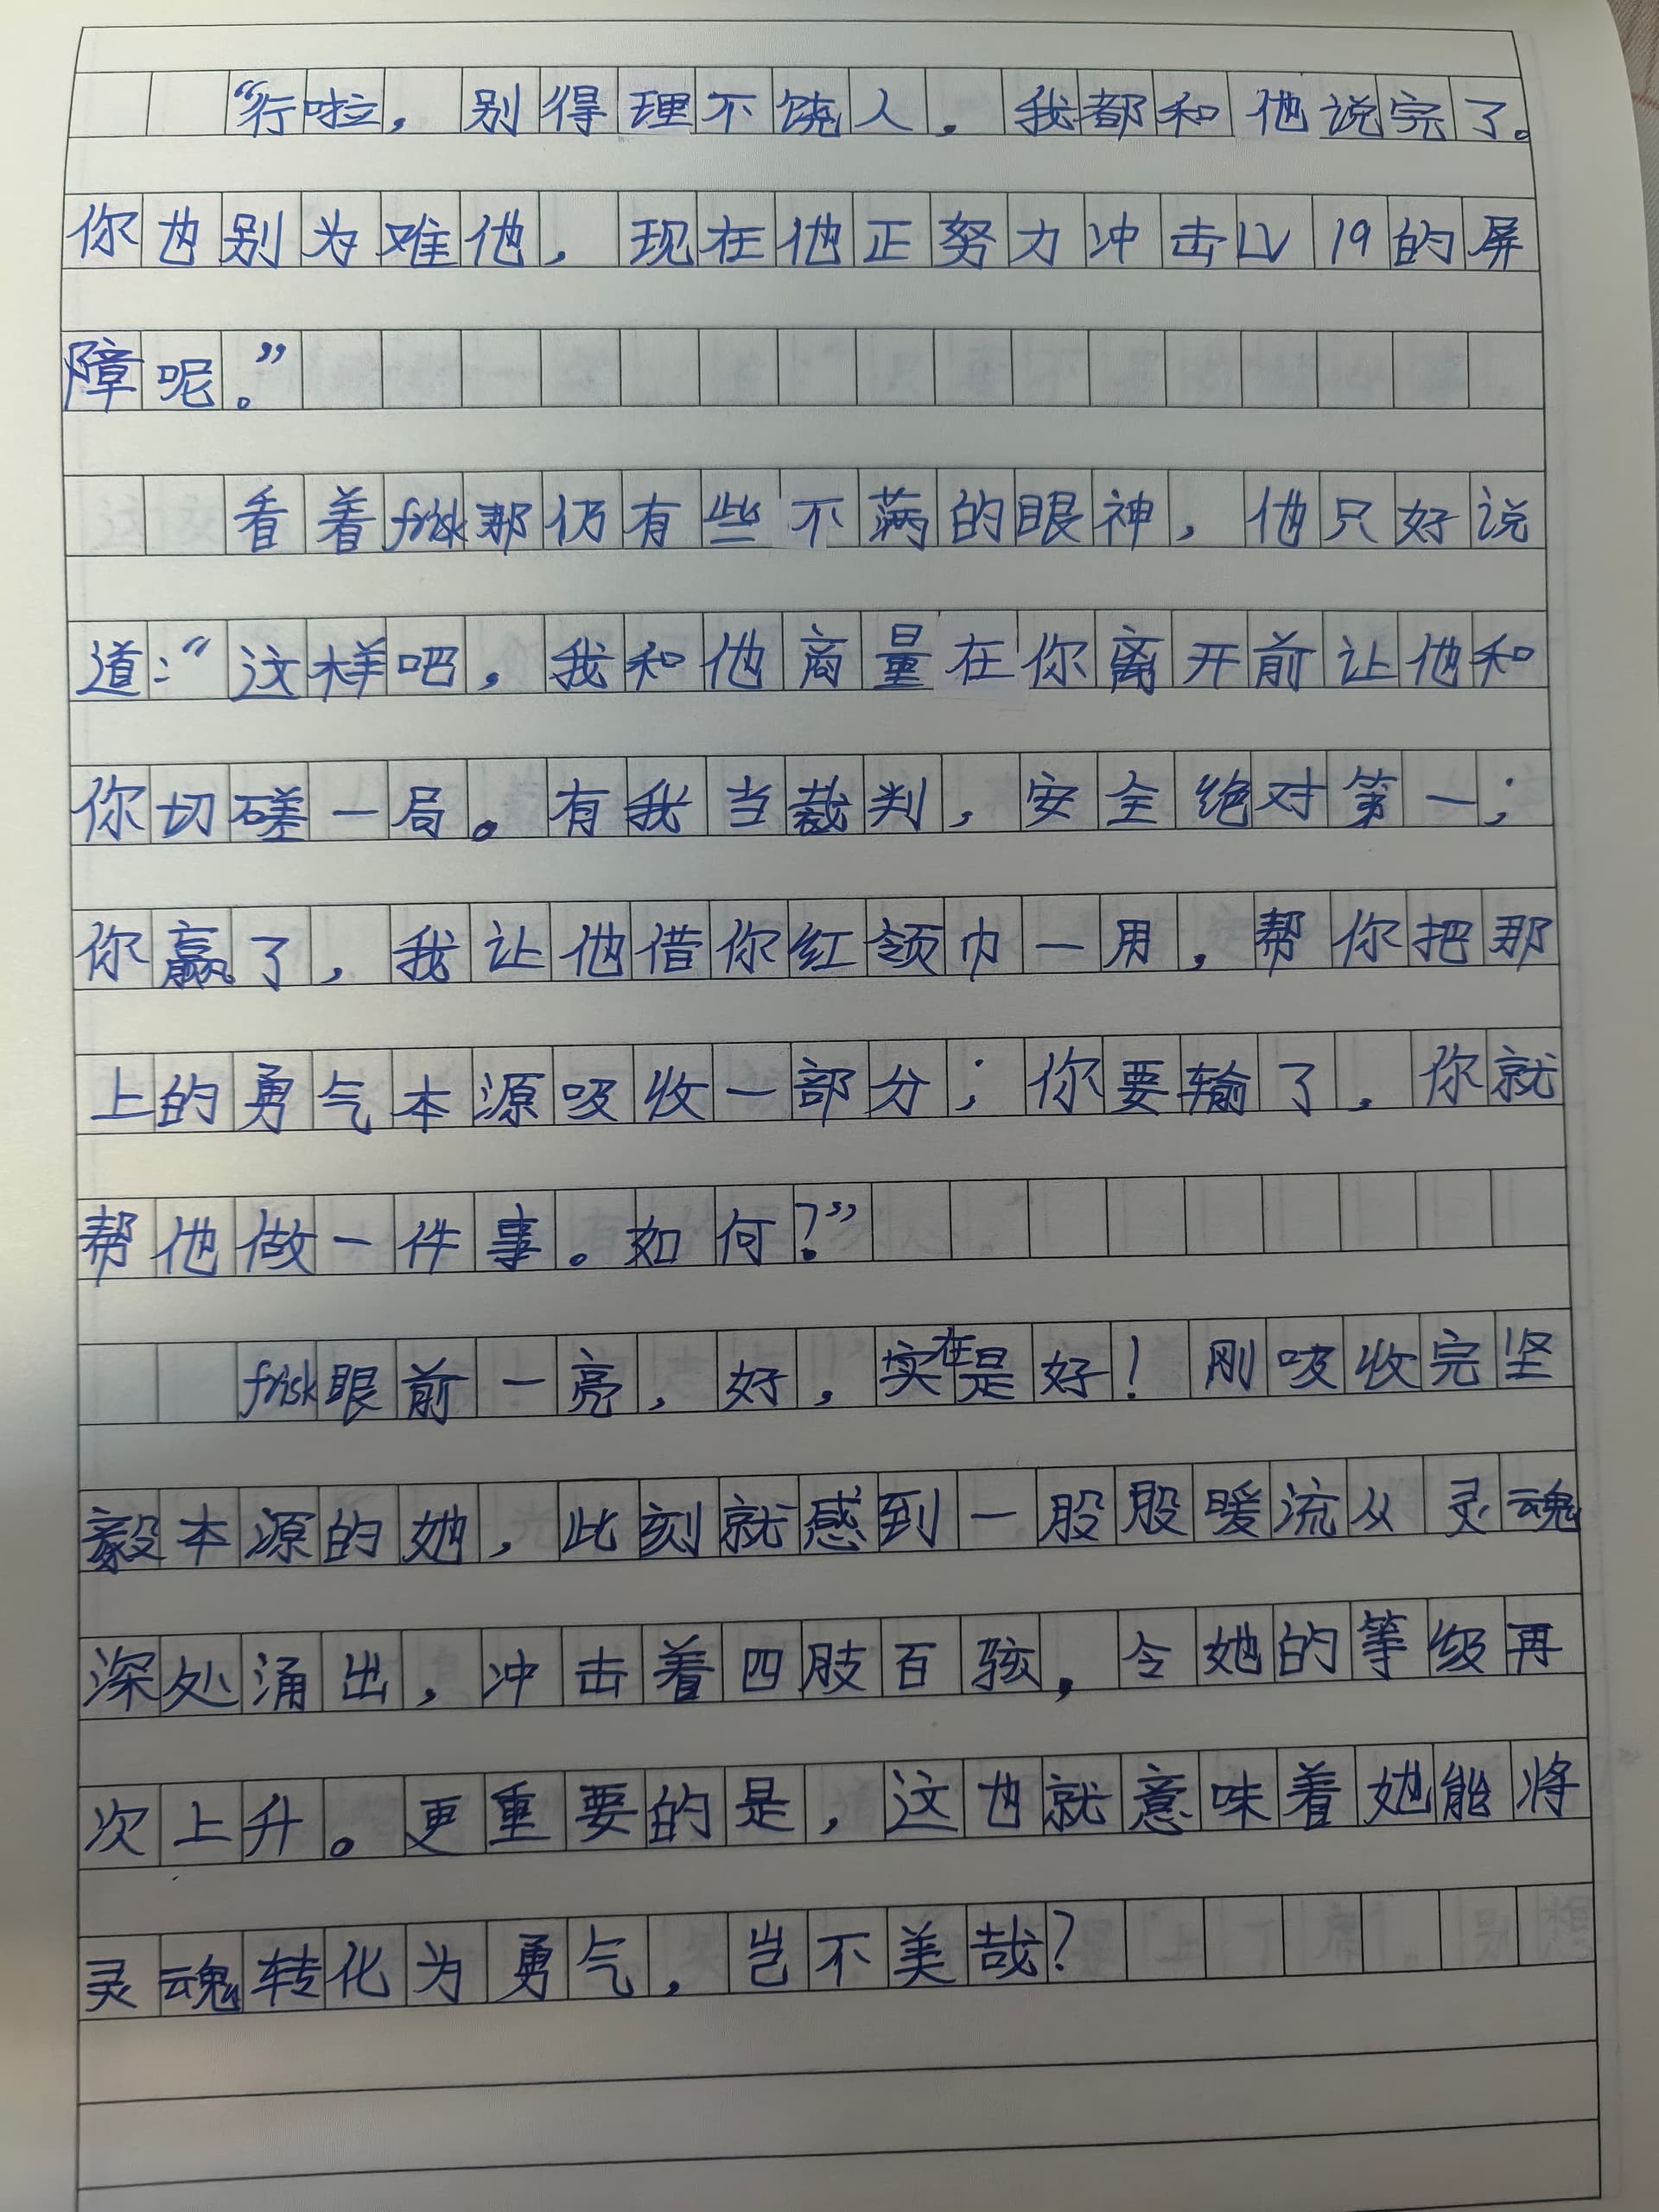 “行啦，别得理不饶人，我都和他说完了。
你也别为难他，现在他正努力冲击LV 19的屏
障呢。”
看着frisk那仍有些不满的眼神，他只好说
道：“这样吧，我和他商量在你离开前让他和
你切磋一局。有我当裁判，安全绝对第一；
你赢了，我让他借你红领巾一用，帮你把那
上的勇气本源吸收一部分；你要输了，你就
帮他做一件事。如何？”
frisk眼前一亮，好，实在是好！刚吸收完坚
毅本源的她，此刻就感到一股股暖流从灵魂
深处涌出，冲击着四肢百骸，令她的等级再
次上升。更重要的是，这也就意味着她能将
灵魂转化为勇气，岂不美哉？